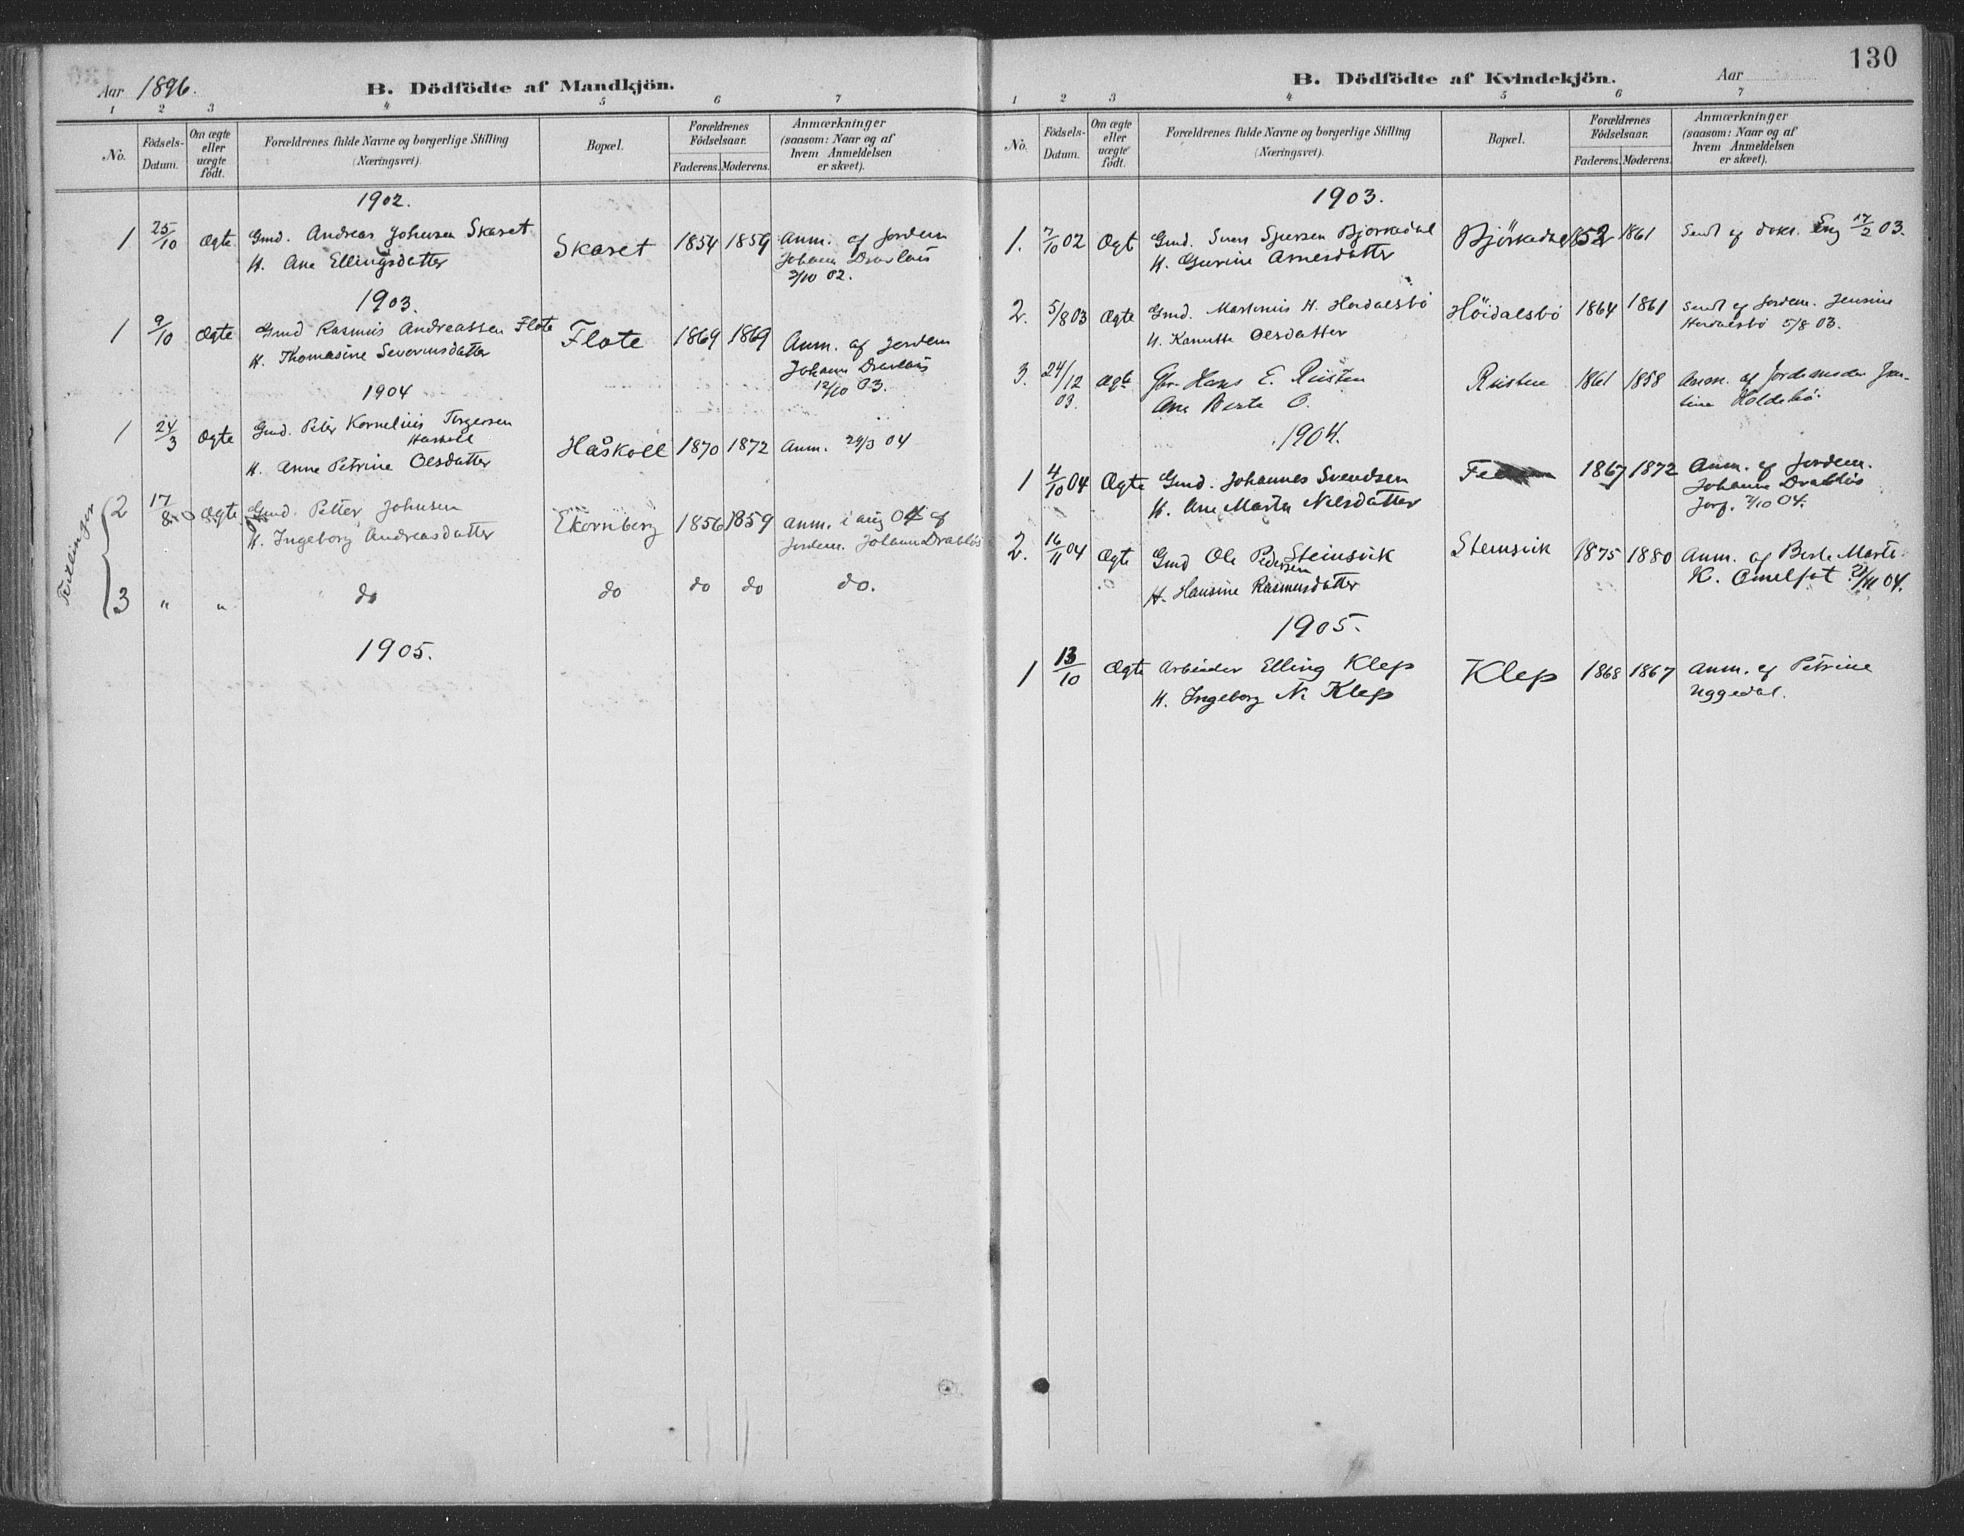 Aar 1896. B. Dödfödte af Mandkjön.
1 2 3 4 5 6 7
No. Födsels-Datum. Om ægte eller uægte födt. Forældrenes fulde Navne og borgerlige Stilling (Næringsvei). Bopæl. Forældrenes Födselsaar. Faderens. Moderens. Anmærkninger (saasom: Naar og af hvem Anmeldelsen er skeet).
1902.
1 25/10 Ægte Gmd. Andreas Johnsen Skaret Skaret 1854 1859 Anm. af Jordem
H. Ane Ellingsdatter Johanne
/10 02.
1903.
1 9/10 Ægte Gmd Rasmus Andreassen Flote Flote 1869 1869 Anm. af Jordem
H. Thomasine Severinsdatter Johanne
12/10 03.
1904
1 24/3 Ægte Gmd. Peter Kornelius Torgersen
Haskoll Håskoll 1870 1872 Anm. 29/3 04
H. Anne Petrine Olsdatter
Tvillinger
2 17/8 Ægte Gmd. Petter Johnsen Ekornberg 1856 1859 Anm. i aug 04 af
H. Ingeborg Andreasdatter Jordem. Johanne Drabløs
3 " " do do do do do.
1905.
130
B. Dödfödte af Kvindekjön. Aar
1 2 3 4 5 6 7
No. Födsels-Datum. Om ægte eller uægte födt. Forældrenes fulde Navne og borgerlige Stilling (Næringsvei). Bopæl. Forældrenes Födselsaar. Faderens. Moderens. Anmærkninger (saasom: Naar og af hvem Anmeldelsen er skeet).
1903.
1. 7/10 02 Ægt Gmd. Sivert Bjørkedal Bjørkedal 1852 1861 Sendt af dokt. Eng 17/2 03.
H. Gurine Arnesdatter
2. 5/8 03 Ægte Gmd. Martinus H. Hoidalsbö Höidalsbö 1864 1861 Sendt af Jordem. Jensine
H. Kanutte Olsdatter Hoidalsbö 5/8 03.
3. 24/12 03. Ægte Gbr. Hans E. Rusten Rusten 1861 1858 Anm. af Jordemoder Jen-
Ane Berte O. sine
1904.
1 4/10 04 Ægte Gmd. Johannes Svendsen 1867 1872 Anm. af Jordem.
H. Ane Marta Nilsdatter Johanne Drabløs
7/10 04.
2. 16/11 04 Ægte Gmd Ole Pedersen Steinsvik Steinsvik 1875 1880 Anm. af Berte Marte
H. Hansine Rasmusdatter K. Omelfot 21/11 04.
1905.
1 13/10 Ægte Arbeider Elling Klep Klep 1868 1867 Anm. af Petrine
H. Ingeborg N. Klep Yggedal.